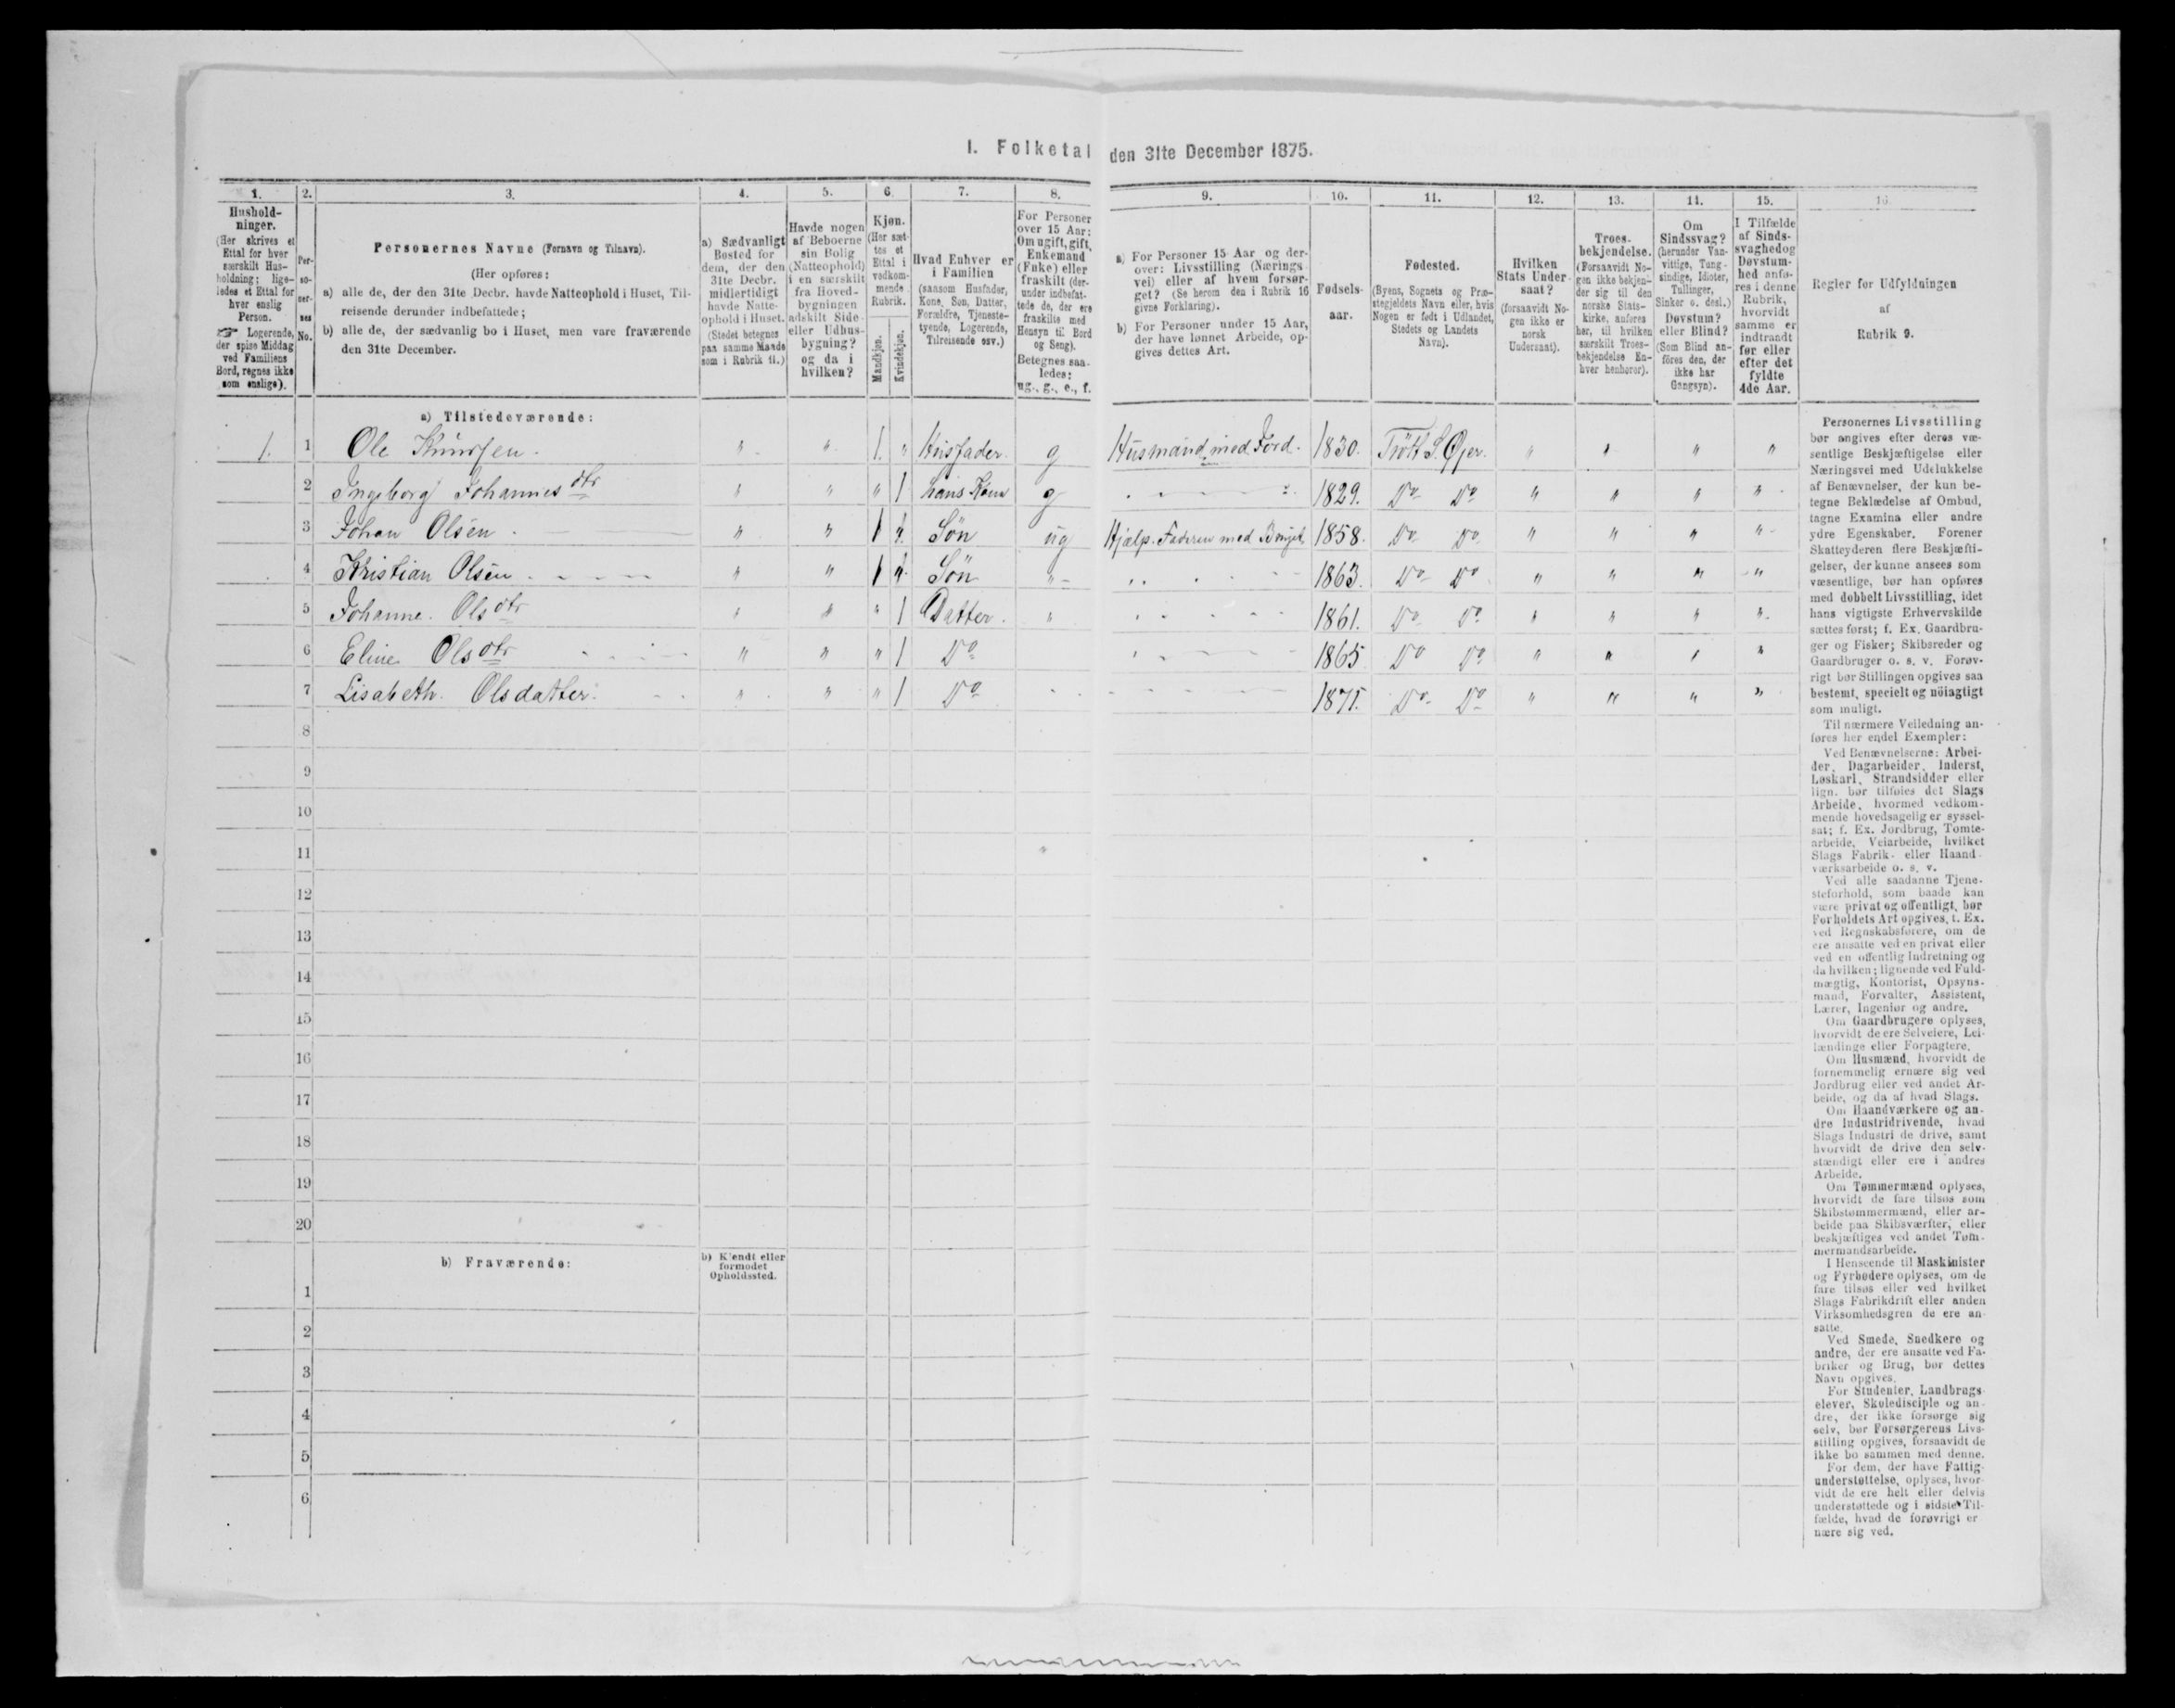 I. Folketal den 31te December 1875.
1. 2. 3. 4. 5. 6. 7. 8. 9. 10. 11. 12. 13. 14. 15. 16.
Hushold-
ninger.
(Her skrives et
Ettal for hver
særskilt Hus-
holdning; lige-
ledes et Ettal for
hver enslig
Person.
☞ Logerende,
der spise Middag
ved Familiens
Bord, regnes ikke
som enslige).
Per-
so-
ner-
nes
No.
Personernes Navne (Fornavn og Tilnavn).
(Her opføres:
a) alle de, der den 31te Decbr. havde Natteophold i Huset, Til-
reisende derunder indbefattede;
b) alle de, der sædvanlig bo i Huset, men vare fraværende
den 31te December.
a) Sædvanligt
Bosted for
dem, der den
31te Decbr.
midlertidigt
havde Natte-
ophold i Huset.
(Stedet betegnes
paa samme Maade
som i Rubrik 11.)
Havde nogen
af Beboerne
sin Bolig
(Natteophold)
i en særskilt
fra Hoved-
bygningen
adskilt Side-
eller Udhus-
bygning?
og da i
hvilken?
Kjøn.
(Her sæt-
tes et
Ettal i
vedkom-
mende
Rubrik.
Mandkjøn.
Kvindekjøn.
Hvad Enhver er
i Familien
(saasom Husfader,
Kone, Søn, Datter,
Forældre, Tjeneste-
tyende, Logerende,
Tilreisende osv.)
For Personer
over 15 Aar:
Om ugift, gift,
Enkemand
(Enke) eller
fraskilt (der-
under indbefat-
tede de, der ere
fraskilte med
Hensyn til Bord
og Seng).
Betegnes saa-
ledes:
ug., g., e., f.
a) For Personer 15 Aar og der-
over: Livsstilling (Nærings-
vei) eller af hvem forsør-
get? (Se herom den i Rubrik 16
givne Forklaring).
b) For Personer under 15 Aar,
der have lønnet Arbeide, op-
gives dettes Art.
Fødsels-
aar.
Fødested.
(Byens, Sognets og Præ-
stegjeldets Navn eller, hvis
Nogen er født i Udlandet,
Stedets og Landets
Navn).
Hvilken
Stats Under-
saat?
(forsaavidt No-
gen ikke er
norsk
Undersaat).
Troes-
bekjendelse.
(Forsaavidt No-
gen ikke bekjen-
der sig til den
norske Stats-
kirke, anføres
her, til hvilken
særskilt Troes-
bekjendelse En-
hver henhører).
Om
Sindssvag?
(herunder Van-
vittige, Tung-
sindige, Idioter,
Tullinger,
Sinker o. desl.)
Døvstum?
eller Blind?
(Som Blind an-
föres den, der
ikke har
Gangsyn).
I Tilfælde
af Sinds-
svaghed og
Døvstum-
hed anfø-
res i denne
Rubrik,
hvorvidt
samme er
indtraadt
før eller
efter det
fyldte
4de Aar.
Regler for Udfyldningen
af
Rubrik 9.
a) Tilstedeværende:
1. 1 Ole Knudsen. " " 1. " Husfader. g Husmand med Jord. 1830. Trött S. Øjer. " " " "
2 Ingeborg Johannesdtr " " " 1 hans Kone g 1829. Do Do " " " "
3 Johan Olsen. " " 1 " Søn ug Hjælp. Faderen med 1858. Do Do " " " "
4 Kristian Olsen. " " 1 " Søn " 1863. Do Do " " " "
5 Johanne. Olsdtr " " " 1 Datter. " 1861. Do Do " " " "
6 Eline Olsdtr " " " 1 Do 1865 Do Do " " " "
7 Lisabeth. Olsdatter. " " " 1 Do 1871. Do Do " " " "
8
9
10
11
12
13
14
15
16
17
18
19
20
b) Fraværende:
b) Kjendt eller
formodet
Opholdssted.
1
2
3
4
5
6
Personernes Livsstilling
bør angives efter deres væ-
sentlige Beskjæftigelse eller
Næringsvei med Udelukkelse
af Benævnelser, der kun be-
tegne Beklædelse af Ombud,
tagne Examina eller andre
ydre Egenskaber. Forener
Skatteyderen flere Beskjæfti-
gelser, der kunne ansees som
væsentlige, bør han opføres
med dobbelt Livsstilling, idet
hans vigtigste Erhvervskilde
sættes først; f. Ex. Gaardbru-
ger og Fisker; Skibsreder og
Gaardbruger o. s. v. Forøv-
rigt bør Stillingen opgives saa
bestemt, specielt og nöiagtigt
som muligt.
Til nærmere Veiledning an-
føres her endel Exempler:
Ved Benævnelserne: Arbei-
der, Dagarbeider, Inderst,
Løskarl, Strandsidder eller
lign. bør tilføies det Slags
Arbeide, hvormed vedkom-
mende hovedsagelig er syssel-
sat; f. Ex. Jordbrug, Tomte-
arbeide, Veiarbeide, hvilket
Slags Fabrik- eller Haand-
værksarbeide o. s. v.
Ved alle saadanne Tjene-
steforhold, som baade kan
være privat og offentligt, bør
Forholdets Art opgives, t. Ex.
ved Regnskabsførere, om de
ere ansatte ved en privat eller
ved en offentlig Indretning og
da hvilken; lignende ved Fuld-
mægtig, Kontorist, Opsyns-
mand, Forvalter, Assistent,
Lærer, Ingeniør og andre.
Om Gaardbrugere oplyses,
hvorvidt de ere Selveiere, Lei-
lændinge eller Forpagtere.
Om Husmænd, hvorvidt de
fornemmelig ernære sig ved
Jordbrug eller ved andet Ar-
beide, og da af hvad Slags.
Om Haandværkere og an-
dre Industridrivende, hvad
Slags Industri de drive, samt
hvorvidt de drive den selv-
stændigt eller ere i andres
Arbeide.
Om Tømmermænd oplyses,
hvorvidt de fare tilsøs som
Skibstømmermænd, eller ar-
beide paa Skibsværfter, eller
beskjæftiges ved andet Tøm-
mermandsarbeide.
I Henseende til Maskinister
og Fyrbødere oplyses, om de
fare tilsøs eller ved hvilket
Slags Fabrikdrift eller anden
Virksomhedsgren de ere an-
satte.
Ved Smede, Snedkere og
andre, der ere ansatte ved Fa-
briker og Brug, bør dettes
Navn opgives.
For Studenter, Landbrugs-
elever, Skoledisciple og an-
dre, der ikke forsørge sig
selv, bør Forsørgerens Livs-
stilling opgives, forsaavidt de
ikke bo sammen med denne.
For dem, der have Fattig-
understøttelse, oplyses, hvor-
vidt de ere helt eller delvis
understøttede og i sidste Til-
fælde, hvad de forøvrigt er
nære sig ved.